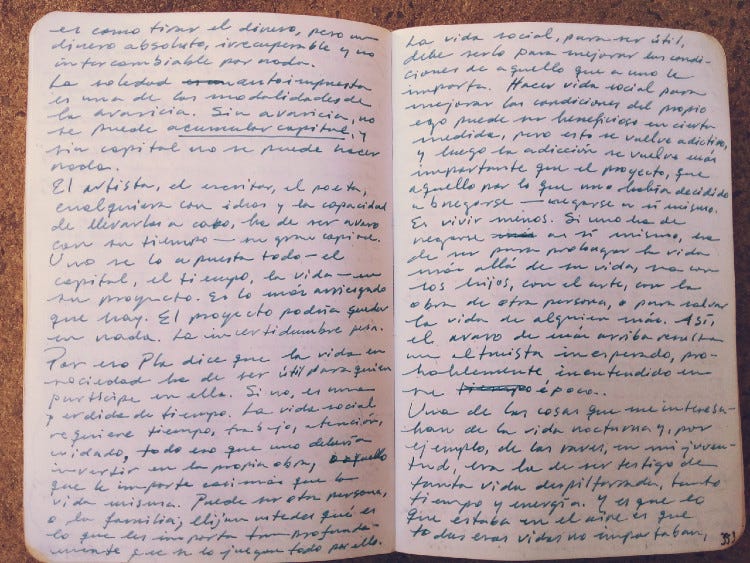 es como tirar el dinero, pero un
dinero absoluto, irrecuperable y no
intercambiable por nada.
La soledad autoimpuesta
es una de las modalidades de
la avaricia. Sin avaricia, no
se puede acumular capital, y
sin capital no se puede hacer
nada.
El artista, el escritor, el poeta,
cualquiera con ideas y la capacidad
de llevarlas a cabo, ha de ser avaro
con su tiempo — su gran capital.
Uno se lo apuesta todo — el
capital, el tiempo, la vida — en
su proyecto. Es lo más arriesgado
que hay. El proyecto podría quedar
en nada. La incertidumbre pesa.
Por eso Pla dice que la vida en
sociedad ha de ser útil para quien
participe en ella. Si no, es una
pérdida de tiempo. La vida social
requiere tiempo, trabajo, atención,
cuidado, todo eso que uno debería
invertir en la propia obra, o aquello
que le importe casi más que la
vida misma. Puede ser otra persona,
o la familia, elijan ustedes qué es
lo que les importa tan profunda-
mente que se lo juegan todo por ello.
La vida social, para ser útil,
debe serlo para mejorar las condi-
ciones de aquello que a uno le
importa. Hacer vida social para
mejorar las condiciones del propio
ego puede ser beneficioso en cierta
medida, pero esto se vuelve adictivo,
y luego la adicción se vuelve más
importante que el proyecto, que
aquello por lo que uno había decidido
abnegarse — negarse a sí mismo.
Es vivir menos. Si uno ha de
negarse a sí mismo, ha
de ser para prolongar la vida
más allá de su vida, sea con
los hijos, con el arte, con la
obra de otra persona, o para salvar
la vida de alguien más. Así,
el avaro de más arriba resulta
un altruista inesperado, pro-
bablemente inentendido en
su época.
Una de las cosas que me interesa-
ban de la vida nocturna y, por
ejemplo, de las raves, en mi juven-
tud, era la de ser testigo de
tanta vida despilfarrada, tanto
tiempo y energía. Y es que lo
que estaba en el aire es que
todas esas vidas no importaban,